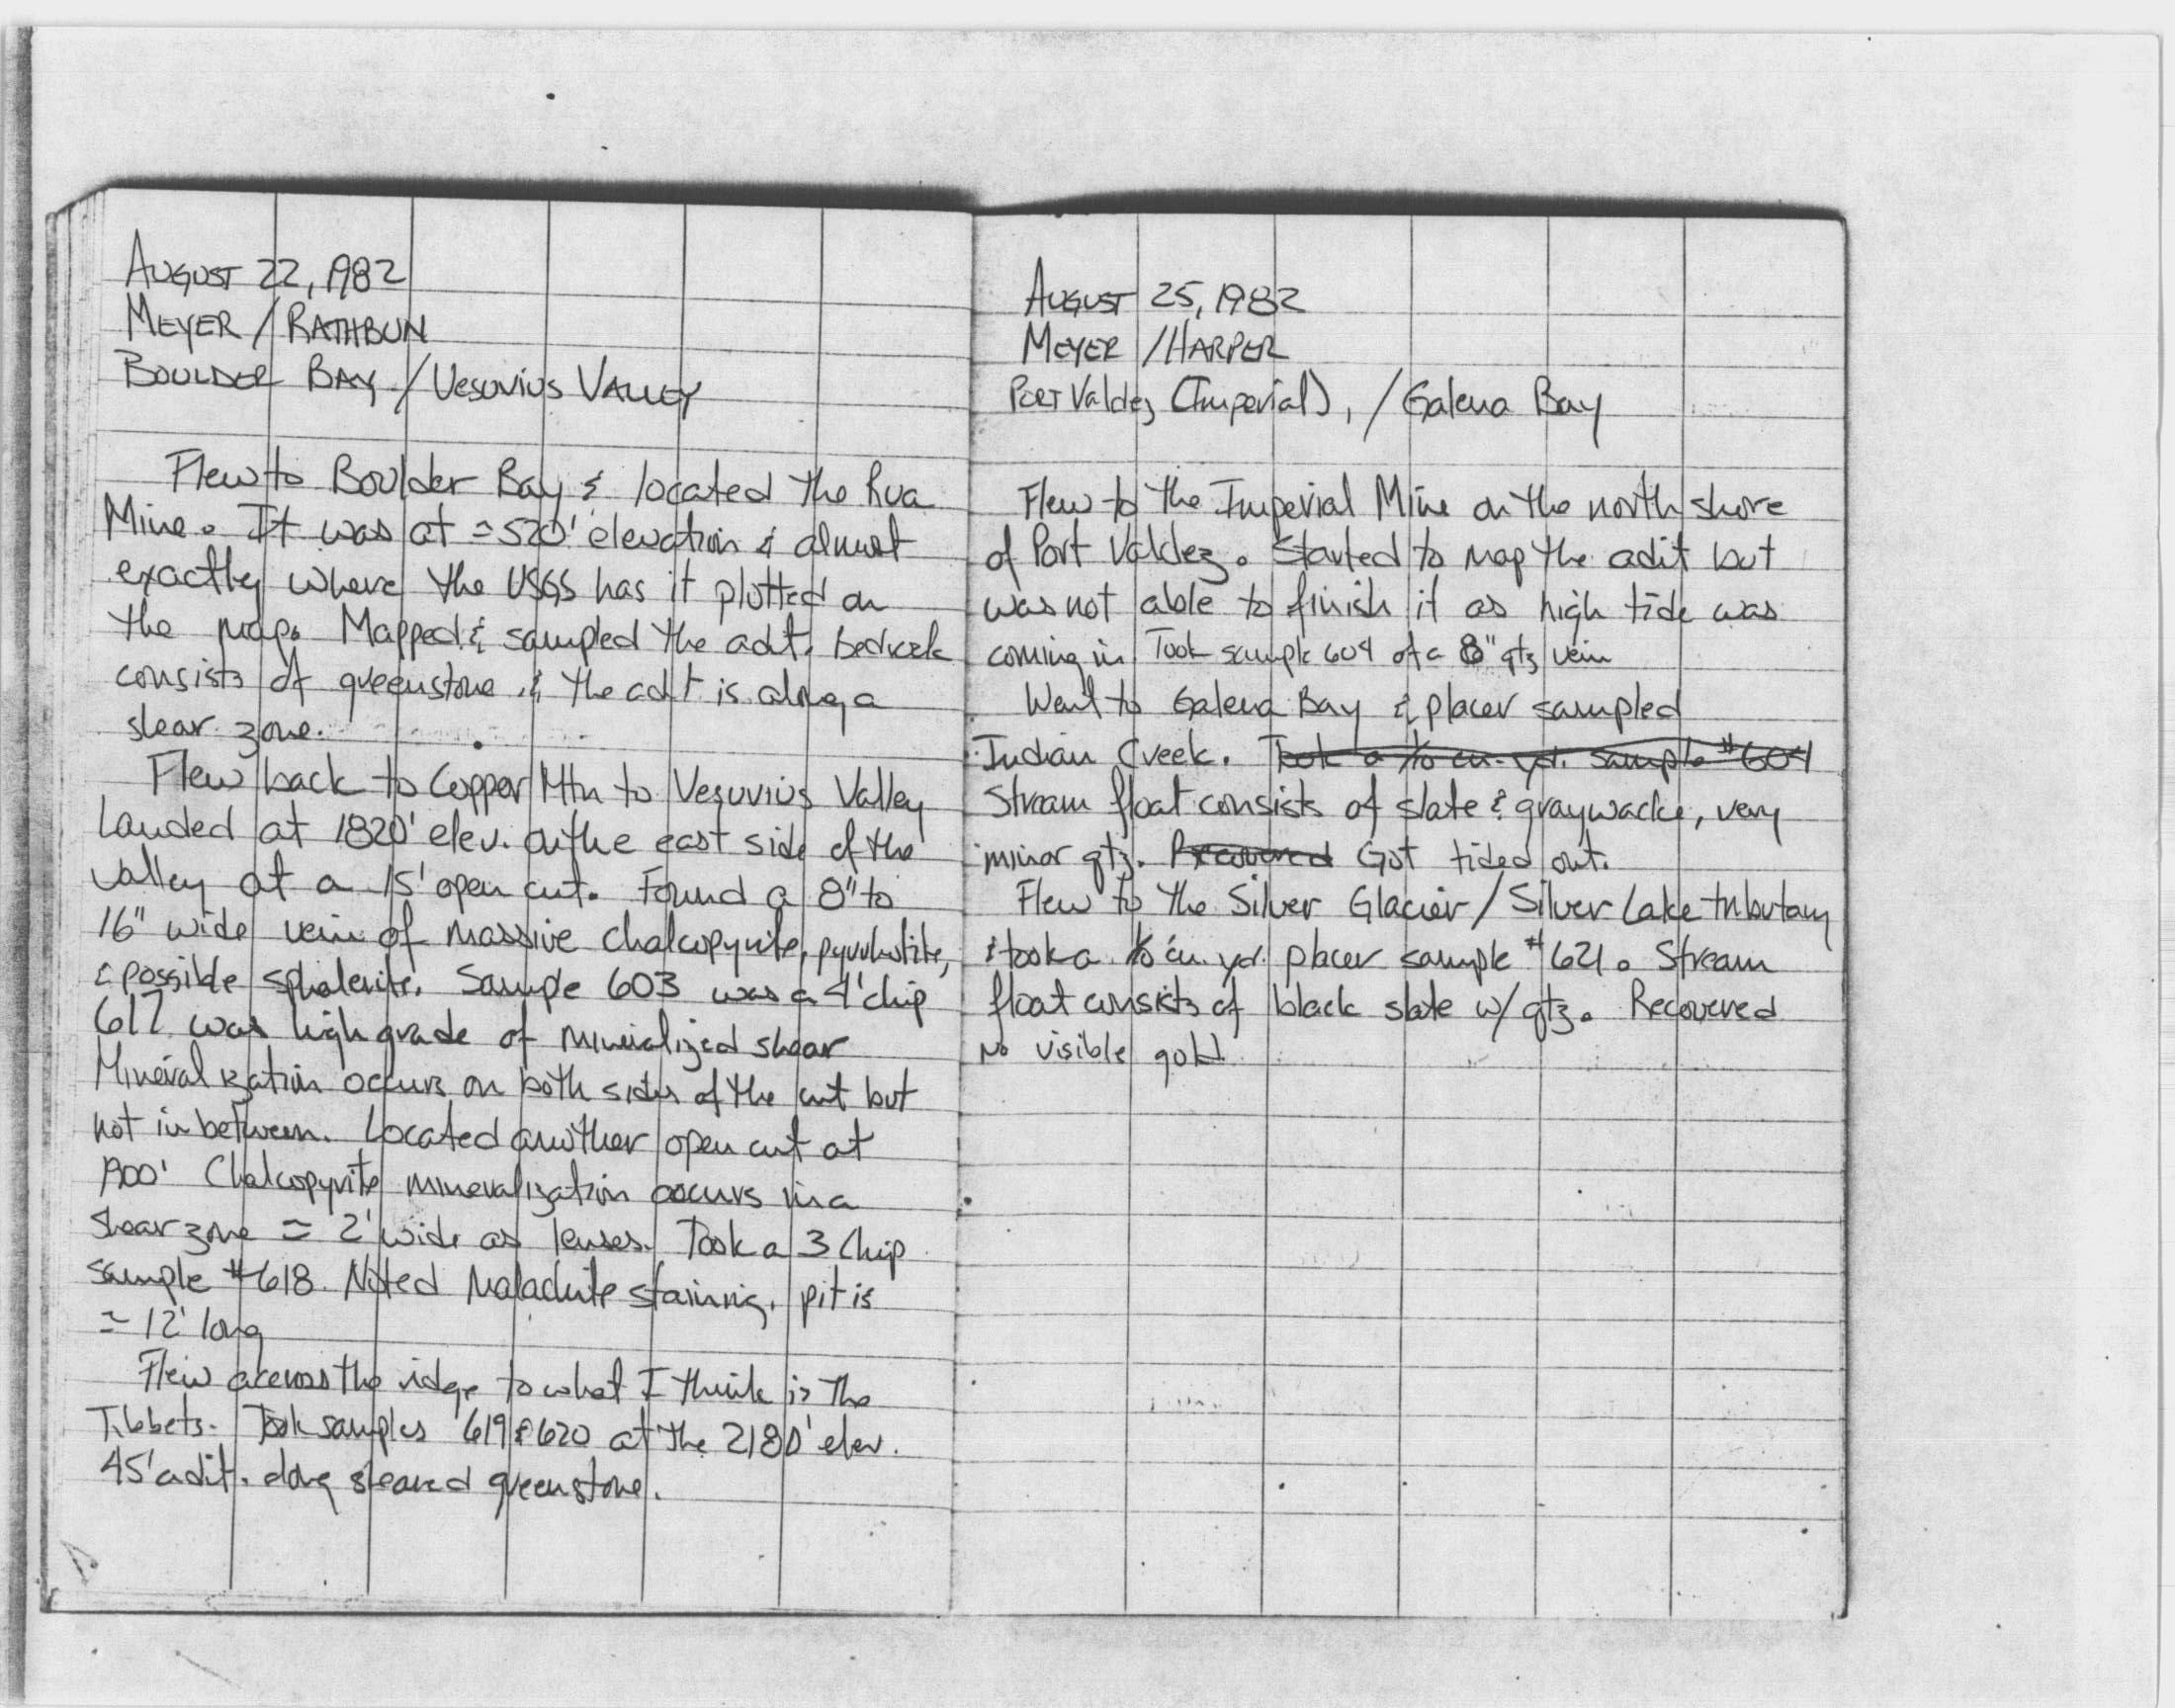 AUGUST 22, 1982
MEYER / RATHBUN
BOULDER BAY / VESUVIUS VALLEY
Flew to Boulder Bay & located the Rua
Mine. It was at ≈ 520' elevation & almost
exactly where the USGS has it plotted on
the map. Mapped & sampled the adit. Bedrock
consists of greenstone & the adit is along a
shear zone.
Flew back to Copper Mtn to Vesuvius Valley
Landed at 1820' elev. on the east side of the
valley at a 15' open cut. Found a 8" to
16" wide vein of massive chalcopyrite, pyrrhotite,
& possible sphalerite. Sample 603 was a 4' chip
617 was high grade of mineralized shear
Mineralization occurs on both sides of the cut but
not in between. Located another open cut at
1900' Chalcopyrite mineralization occurs in a
shear zone ≈ 2' wide as lenses. Took a 3 chip
sample #618. Noted Malachite staining. pit is
≈ 12' long
Flew across the ridge to what I think is the
Tibbets. Took samples 619 & 620 at the 2180' elev.
45' adit. along sheared greenstone.
AUGUST 25, 1982
MEYER / HARPER
PORT Valdez (Imperial), / Galena Bay
Flew to the Imperial Mine on the north shore
of Port Valdez. Started to map the adit but
was not able to finish it as high tide was
coming in. Took sample 604 of a 8" qtz vein
Went to Galena Bay & placer sampled
Indian Creek. Took a 1/10 cu. yd. sample #604
Stream float consists of slate & graywacke, very
minor qtz. Recovered Got tided out.
Flew to the Silver Glacier / Silver Lake tributary
& took a 1/10 cu. yd. placer sample #621. Stream
float consists of black slate w/ qtz. Recovered
no visible gold